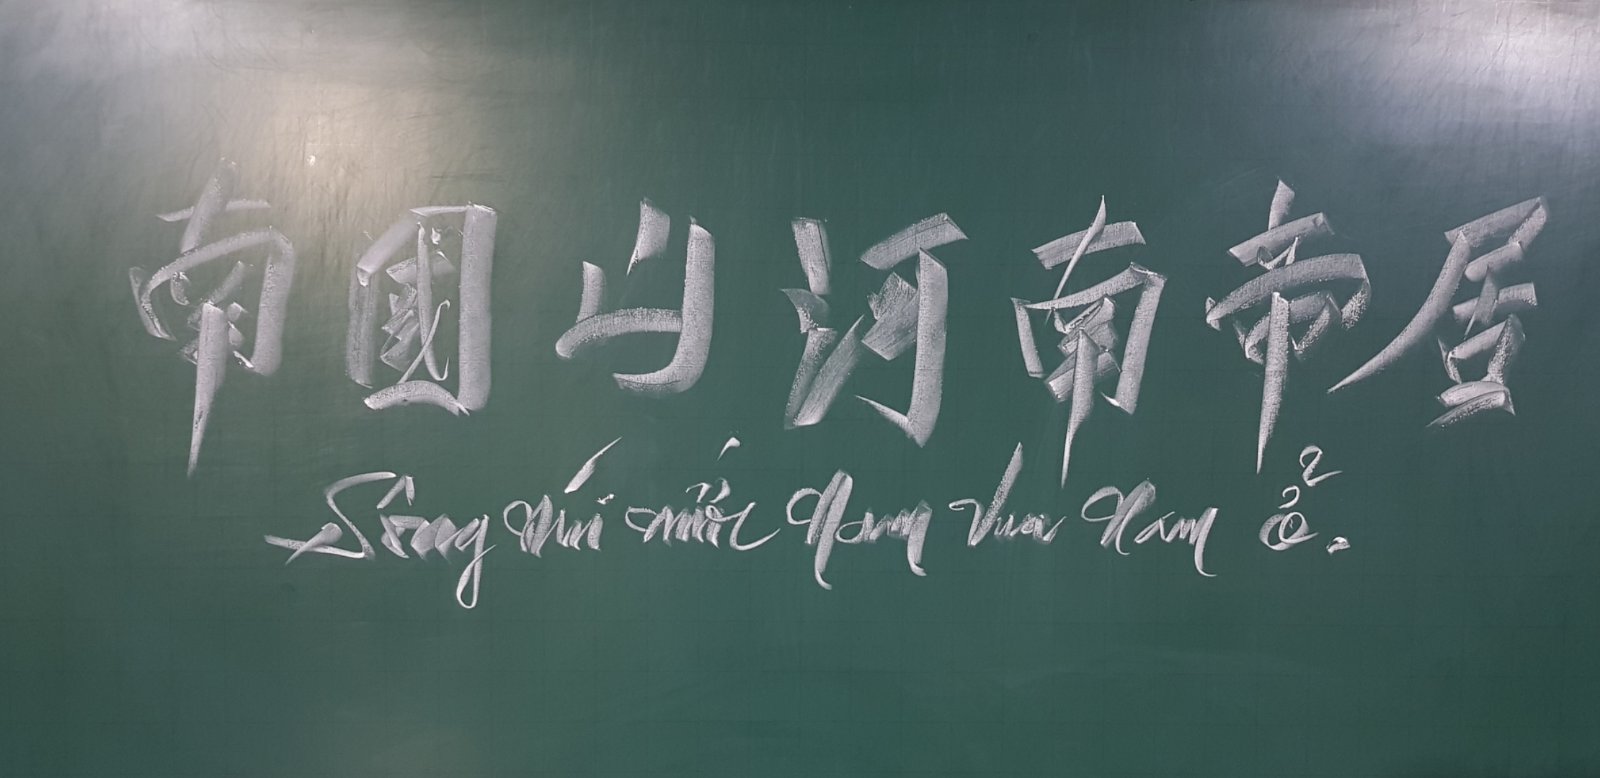 南國山河南帝居
Sông núi nước Nam Vua Nam ở.